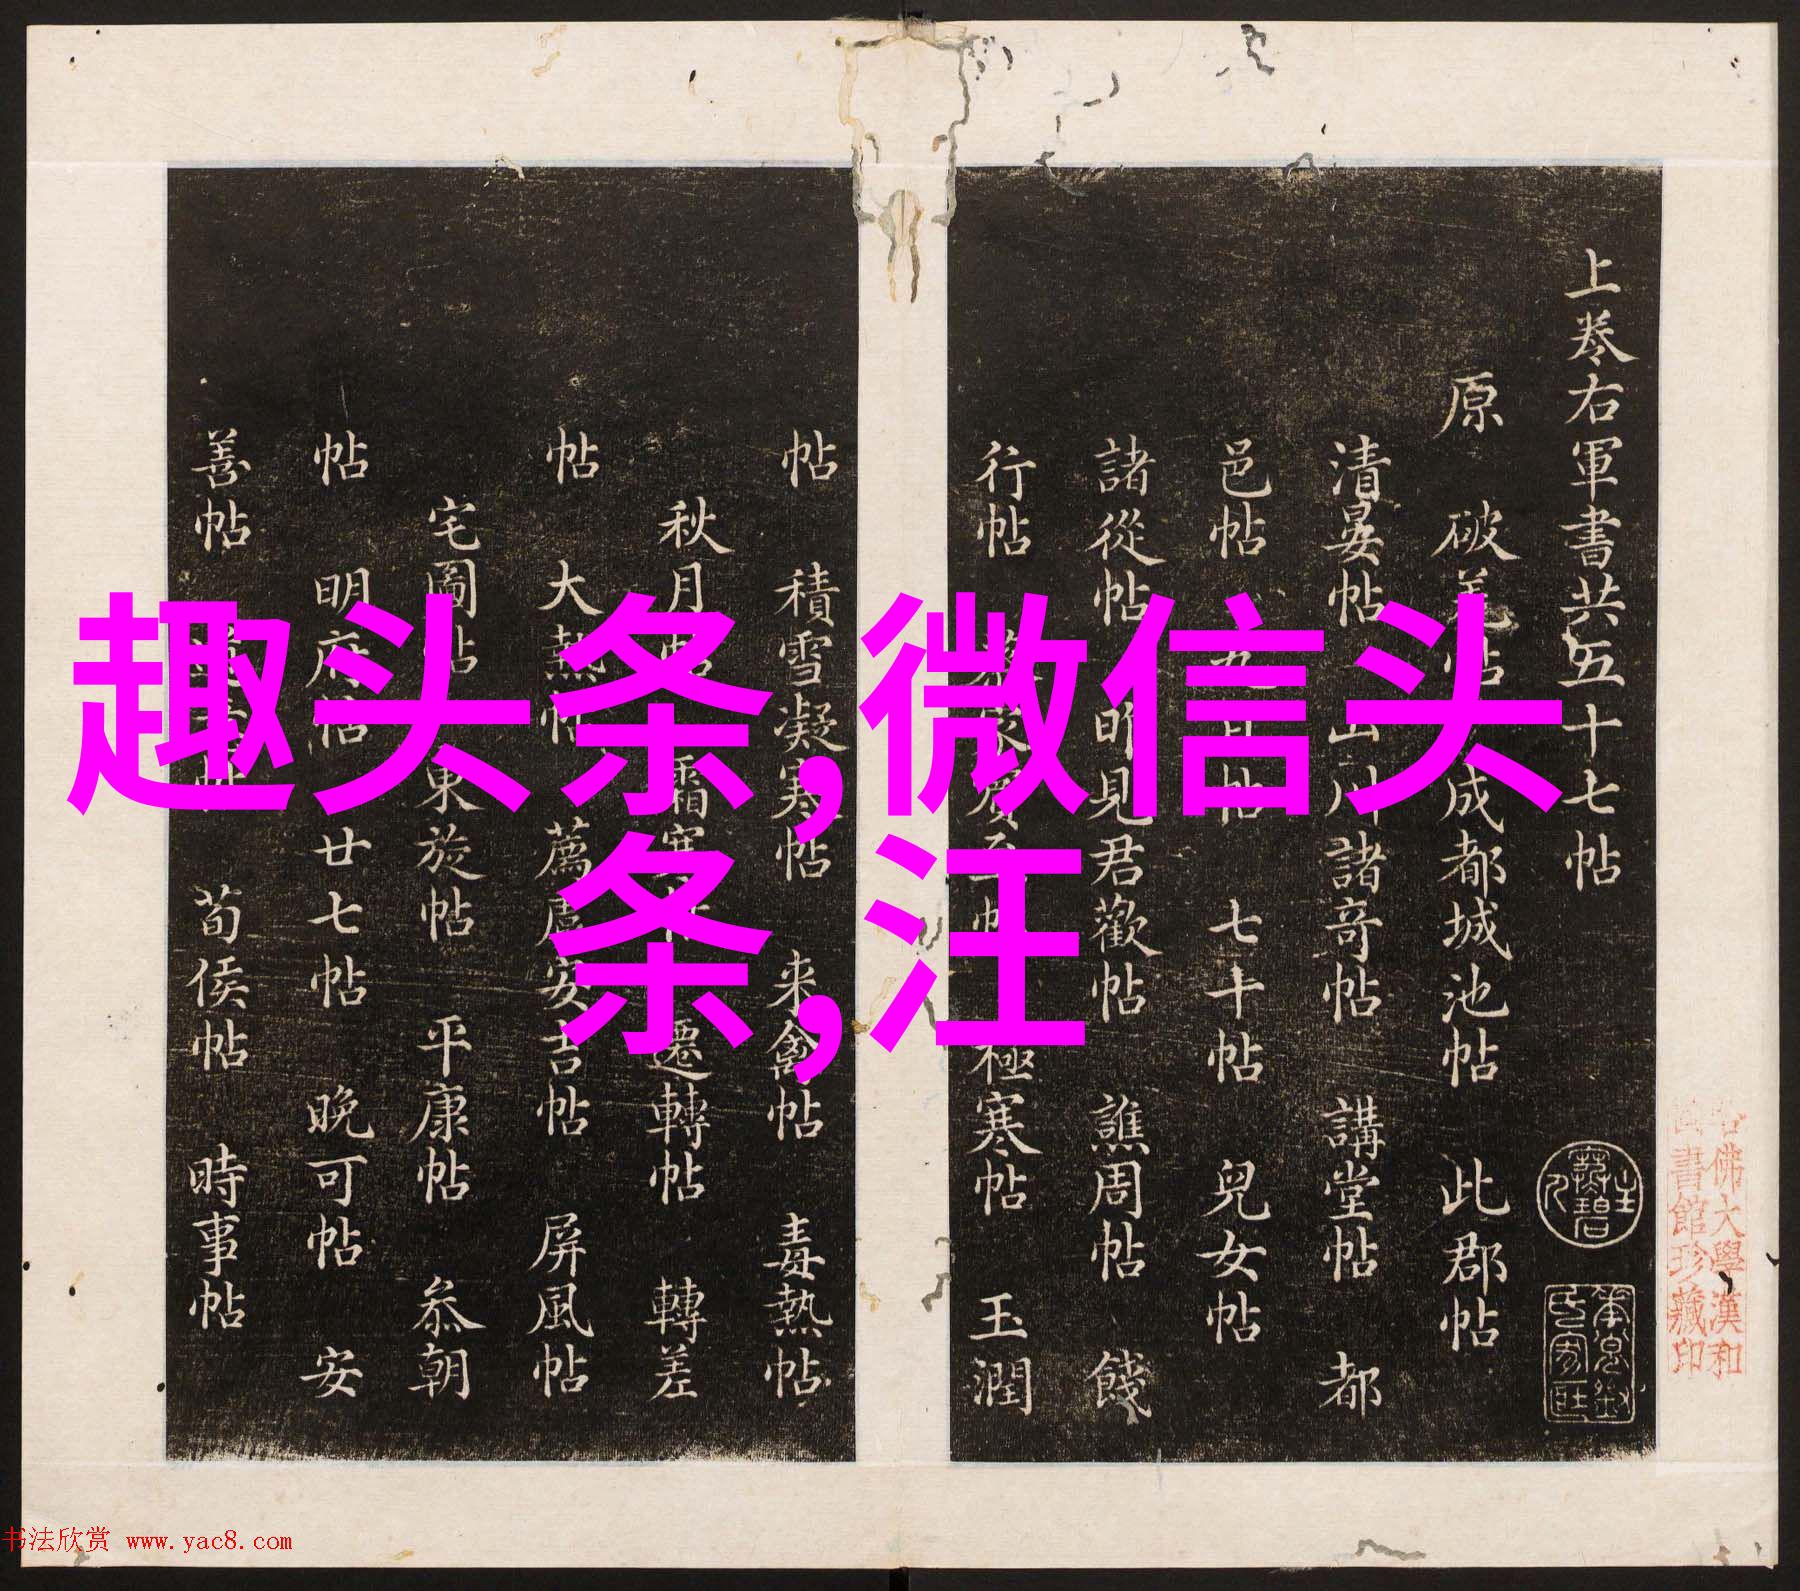 上卷右軍書共五十七帖
原 破羌帖 成都城池帖 此郡帖
清晏帖 山川諸奇帖 講堂帖 都
邑帖 七十帖 兒女帖
諸從帖 昨見君歡帖 譙周帖 餞
行帖 極寒帖 玉潤
帖 積雪凝寒帖 来禽帖 毒熱帖
秋月帖 霜寒帖 遷轉帖 轉差
帖 大熱帖 薦盧安吉帖 屏風帖
宅圖帖 東旋帖 平康帖 叅朝
帖 明府帖 廿七帖 晚可帖 安
善帖 荀侯帖 時事帖
趣头条,微信头
条,汪
佛大學漢和
書館珍藏印
书法欣赏 www.yac8.com